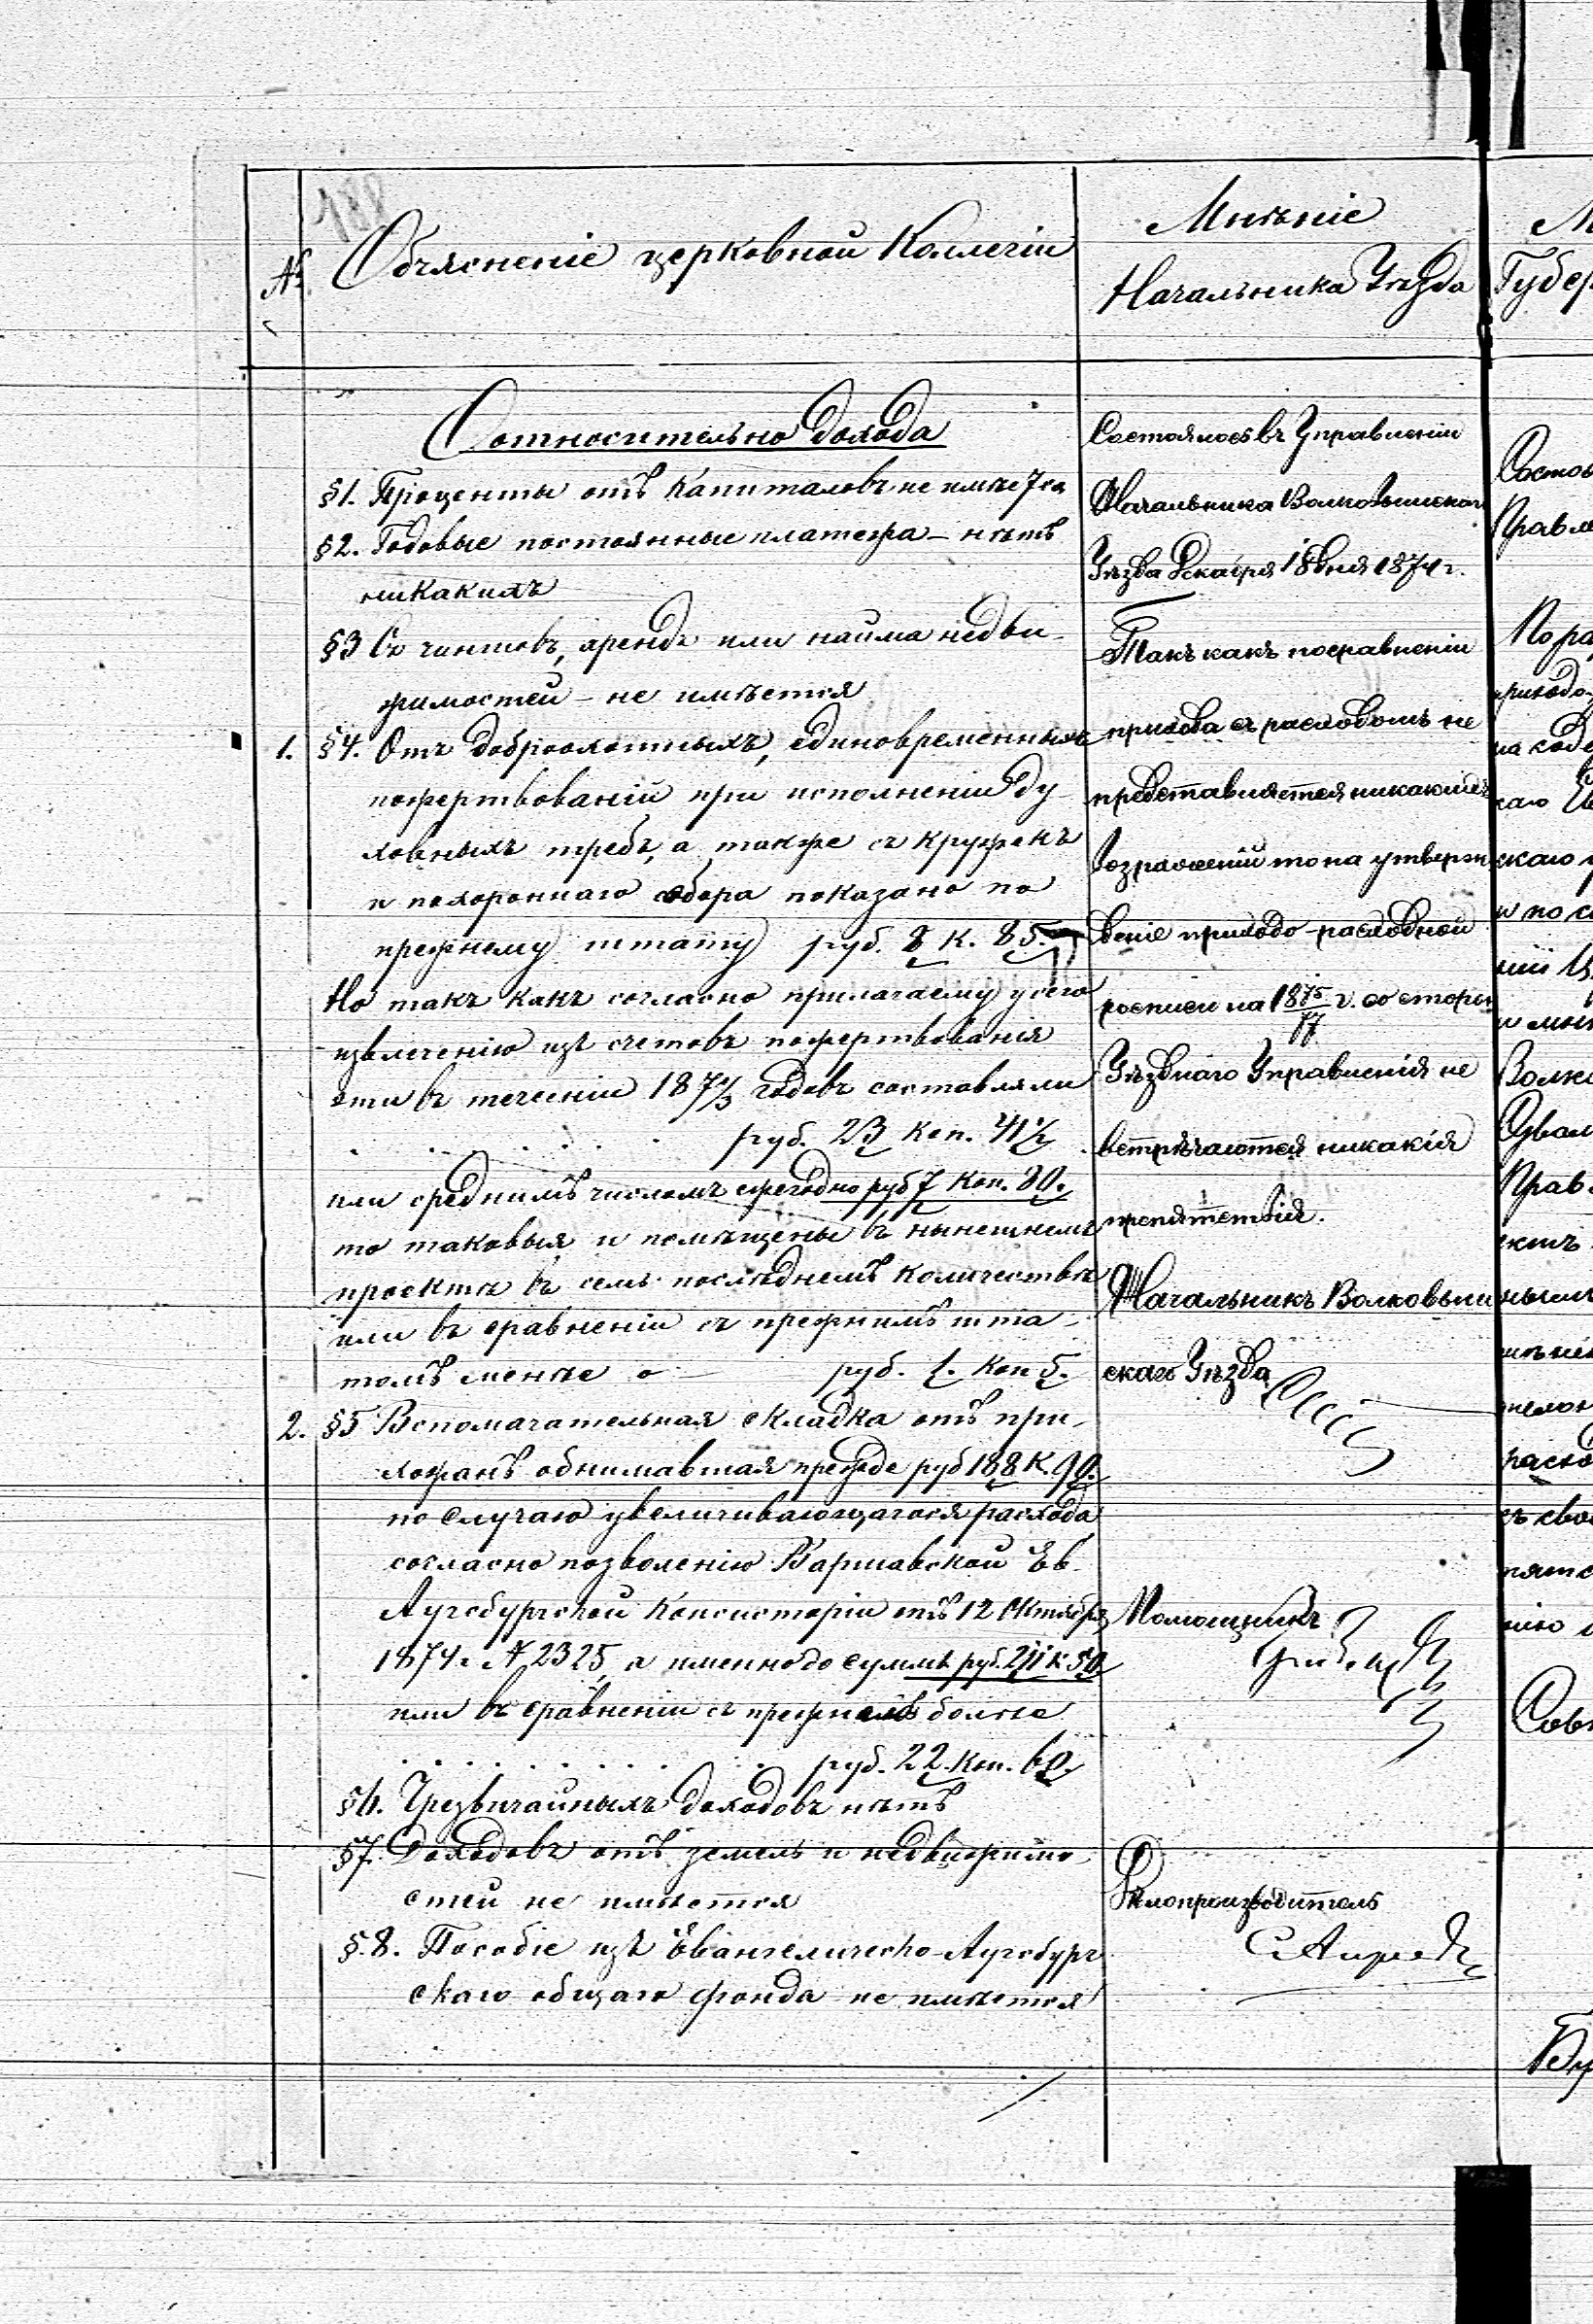 №
Объясненіе церковной Коллегіи
Мнѣніе
Начальника Уѣзда
Относительно дохода
§1. Проценты отъ Капиталовъ не имѣется
§2. Годовые постоянные платежа – нѣтъ
никакихъ
§3 Съ чиншовъ, арендъ или найма недви-
жимостей – не имѣется
1. §4. Отъ добровольныхъ, единовременныхъ
пожертвованій при исполненіи ду-
ховныхъ требъ, а также съ кружекъ
и похороннаго сбора показано по
прежнему штату руб. 8 К. 85.
Но такъ какъ согласно прилагаемому у сего
извлеченію изъ счетовъ пожертвованія
эти въ теченіи 187 годовъ составляли
руб. 23 Коп. 41½
или среднимъ числомъ ежегодно руб 7 Коп. 80.
то таковыя и помѣщены въ нынешнемъ
проектѣ въ семъ послѣднемъ количествѣ
или въ сравненіи съ прежнимъ шта-
томъ менѣе о руб. 1. Коп 5.
2. §5 Вспомагательная складка отъ при-
хожанъ обнимавшая прежде руб 188 К. 90.
по случаю увеличивающагося расхода
согласно позволенію Варшавской Ев.
Аугсбургской Консисторіи отъ 12 Октября
1874 г. № 2325, а именно до суммы руб. 211 к 50
или въ сравненіи съ прежнимъ болѣе
руб. 22. Коп. 60.
§6. Чрезвычайныхъ доходовъ нѣтъ
§7. Доходовъ отъ земель и недвижимо-
стей не имѣется
§.8. Пособіе изъ Евангелическо-Аугсбург
скаго общаго фонда не имѣется
Состоялось въ Управленіи
Начальника Волковышскаго
Уѣзда Декабря 18 дня 1874 г.
Такъ какъ по сравненіи
прихода съ расходомъ не
представляется никакихъ
возраженій то на утверж
деніе приходо-расходной
росписи на 1875/77 г. со стороны
Уѣзднаго Управленія не
встрѣчаются никакія
препятствія.
Начальникъ Волковыш
скаго Уѣзда
Помощникъ
Дѣлопроизводитель
Губер
Правл
приходо
скаго
и по
Прав
расхо